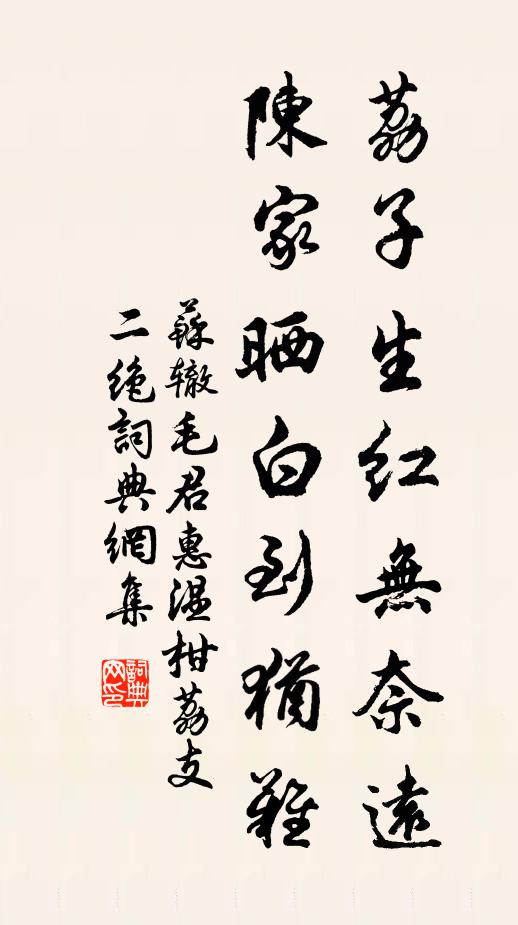 荔子生红無奈遠
陳家晒白到猶難
蘇辙毛君惠温柑荔支
二绝詞典網集
詞典网印